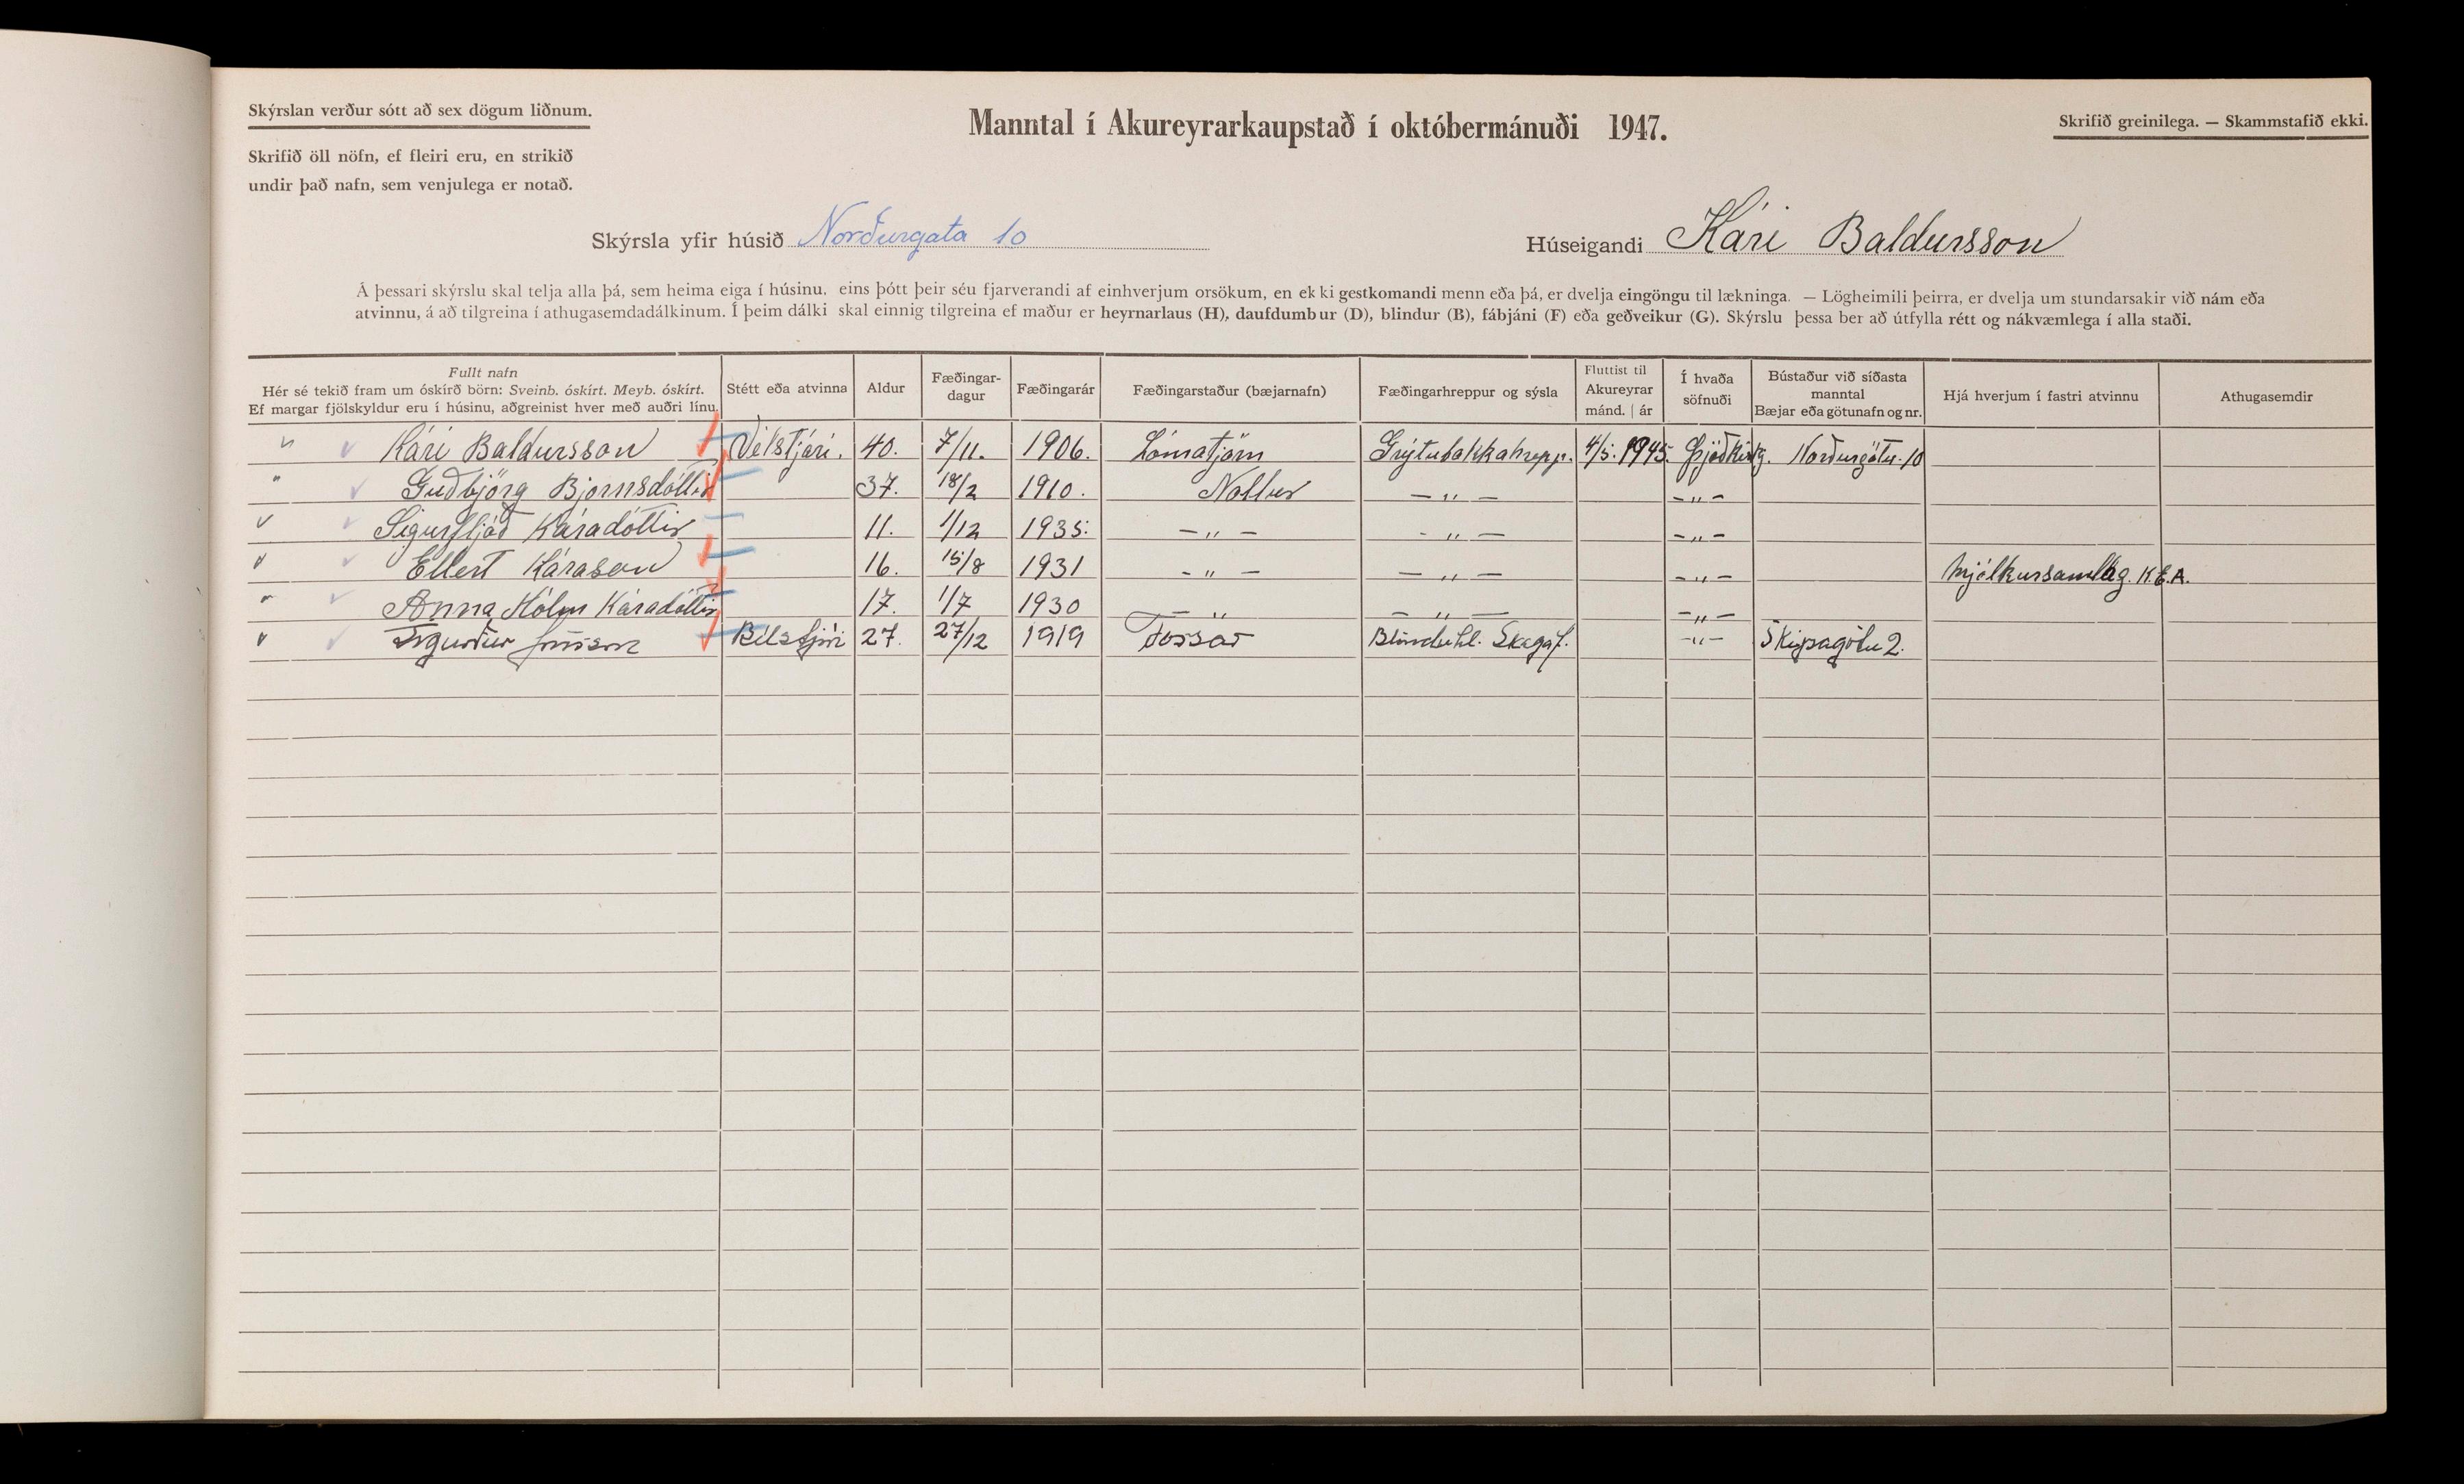 Skýrslan verður sótt að sex dögum liðnum.
Skrifið öll nöfn, ef fleiri eru, en strikið
undir það nafn, sem venjulega er notað.
Manntal í Akureyrarkaupstað í októbermánuði 1947.
Skrifið greinilega. — Skammstafið ekki.
Skýrsla yfir húsið Norðurgata 10
Húseigandi Kári Baldursson
Á þessari skýrslu skal telja alla þá, sem heima eiga í húsinu, eins þótt þeir séu fjarverandi af einhverjum orsökum, en ekki gestkomandi menn eða þá, er dvelja eingöngu til lækninga. — Lögheimili þeirra, er dvelja um stundarsakir við nám eða
atvinnu, á að tilgreina í athugasemdadálkinum. Í þeim dálki skal einnig tilgreina ef maður er heyrnarlaus (H), daufdumbur (D), blindur (B), fábjáni (F) eða geðveikur (G). Skýrslu þessa ber að útfylla rétt og nákvæmlega í alla staði.
Fullt nafn
Hér sé tekið fram um óskírð börn: Sveinb. óskírt. Meyb. óskírt.
Ef margar fjölskyldur eru í húsinu, aðgreinist hver með auðri línu.
Stétt eða atvinna
Aldur
Fæðingar-
dagur
Fæðingarár
Fæðingarstaður (bæjarnafn)
Fæðingarhreppur og sýsla
Fluttist til
Akureyrar
mánd. | ár
Í hvaða
söfnuði
Bústaður við síðasta
manntal
Bæjar eða götunafn og nr.
Hjá hverjum í fastri atvinnu
Athugasemdir
" Kári Baldursson Vélstjóri. 40. 7/11. 1906. Lómatjörn Grýtubakkahrepp. 4/5. 1945. Þjóðkirkj. Norðurgötu 10
" Guðbjörg Bjornsdóttir 37. 18/2 1910. Nollur — " — — " —
Sigurfljóð Káradóttir 11. 1/12 1935. — " — - " — — " —
Ellert Kárason 16. 15/8 1931 - " — — " — — " — Mjólkursamlag. K.E.A.
" Anna Hólm Káradóttir 17. 1/7 1930 — " — " — — " —
Sigurður Jónsson Bílstjóri 27. 27/12 1919 Fossar Blönduhl. Skagaf. — " — Skipagötu 2.